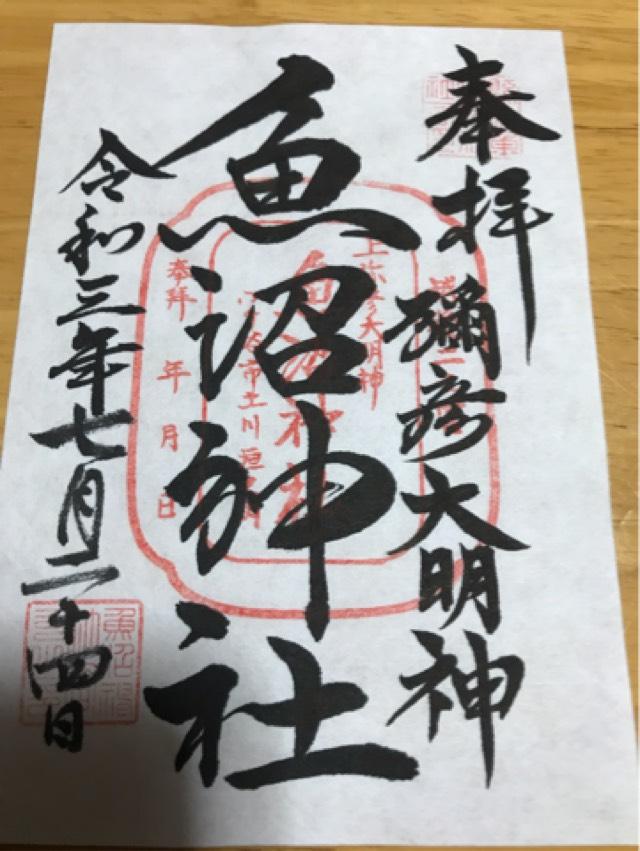 奉拝
彌彦大明神
魚沼神社
令和三年七月二十四日
大明神
市土川
奉拝 年 月 日